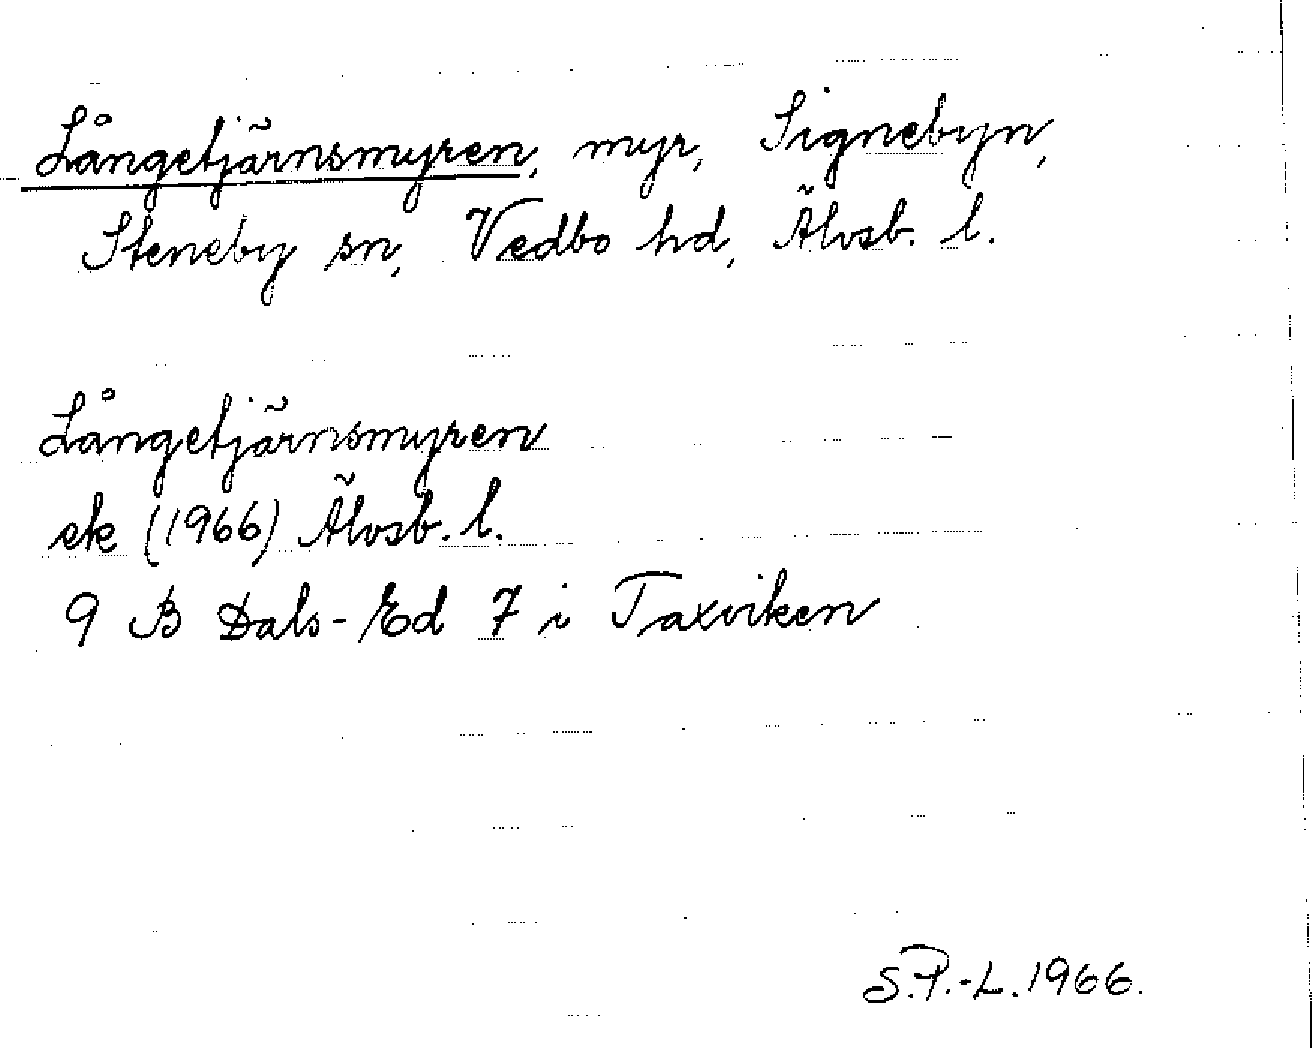 Långetjärnsmyren, myr, Signebyn,
Steneby sn, Vedbo hd, Älvsb. l.
Långetjärnsmyren
ek (1966) Älvsb. l.
9 B Dals-Ed 7 i Taxviken
S.P.-L. 1966.